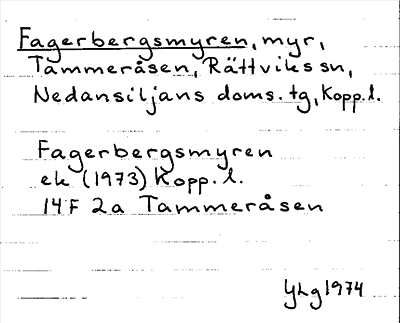 Fagerbergsmyren, myr,
Tammeråsen, Rättviks sn,
Nedansiljans doms. tg, Kopp. l.
Fagerbergsmyren
ek (1973) Kopp. l.
14 F 2a Tammeråsen
YLg 1974